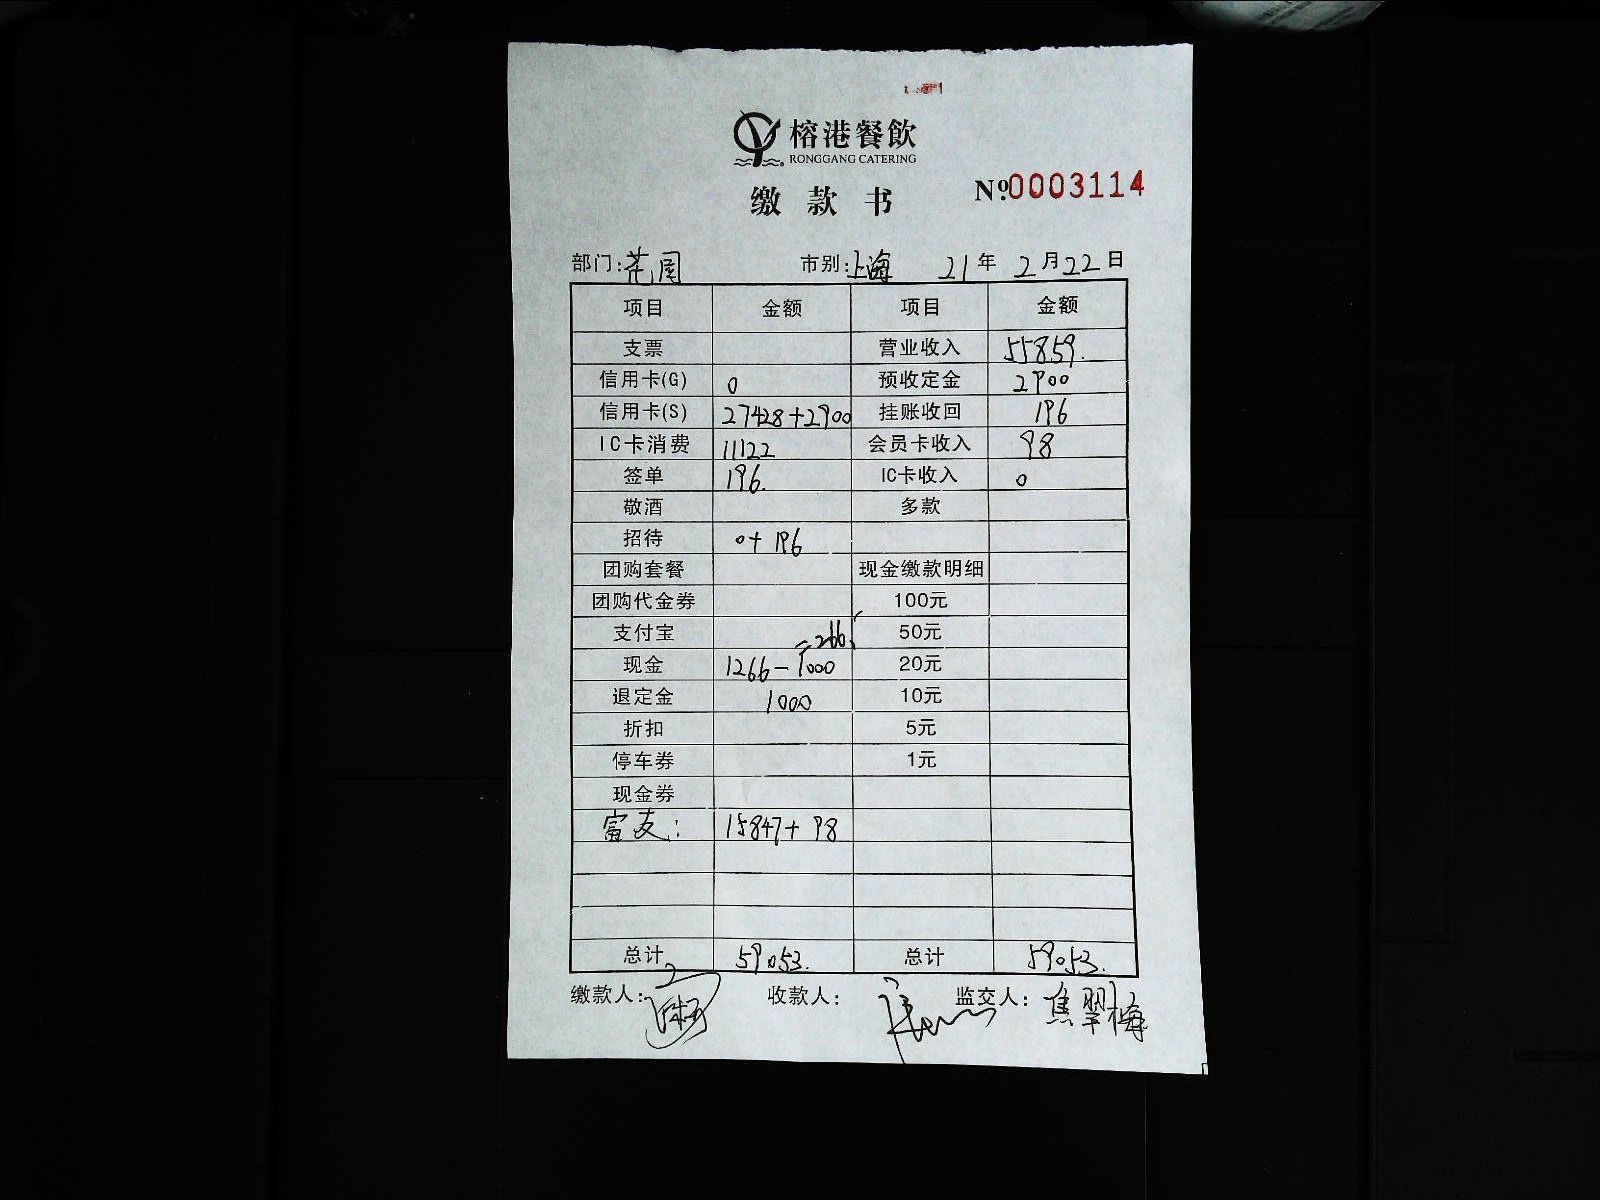 榕港餐飲
RONGGANG CATERING
缴款书 №0003114
部门:花园 市别:上海 21年2月22日
项目 金额 项目 金额
支票 营业收入 55859.
信用卡(G) 0 预收定金 2900
信用卡(S) 27428+2900 挂账收回 196
IC卡消费 11122 会员卡收入 98
签单 196. IC卡收入 0
敬酒 多款
招待 0+196
团购套餐 现金缴款明细
团购代金券 100元
支付宝 50元
=266
现金 1266-1000 20元
退定金 1000 10元
折扣 5元
停车券 1元
现金券
富友: 15847+98
总计 59053. 总计 59053.
缴款人: 收款人: 监交人:焦翠梅